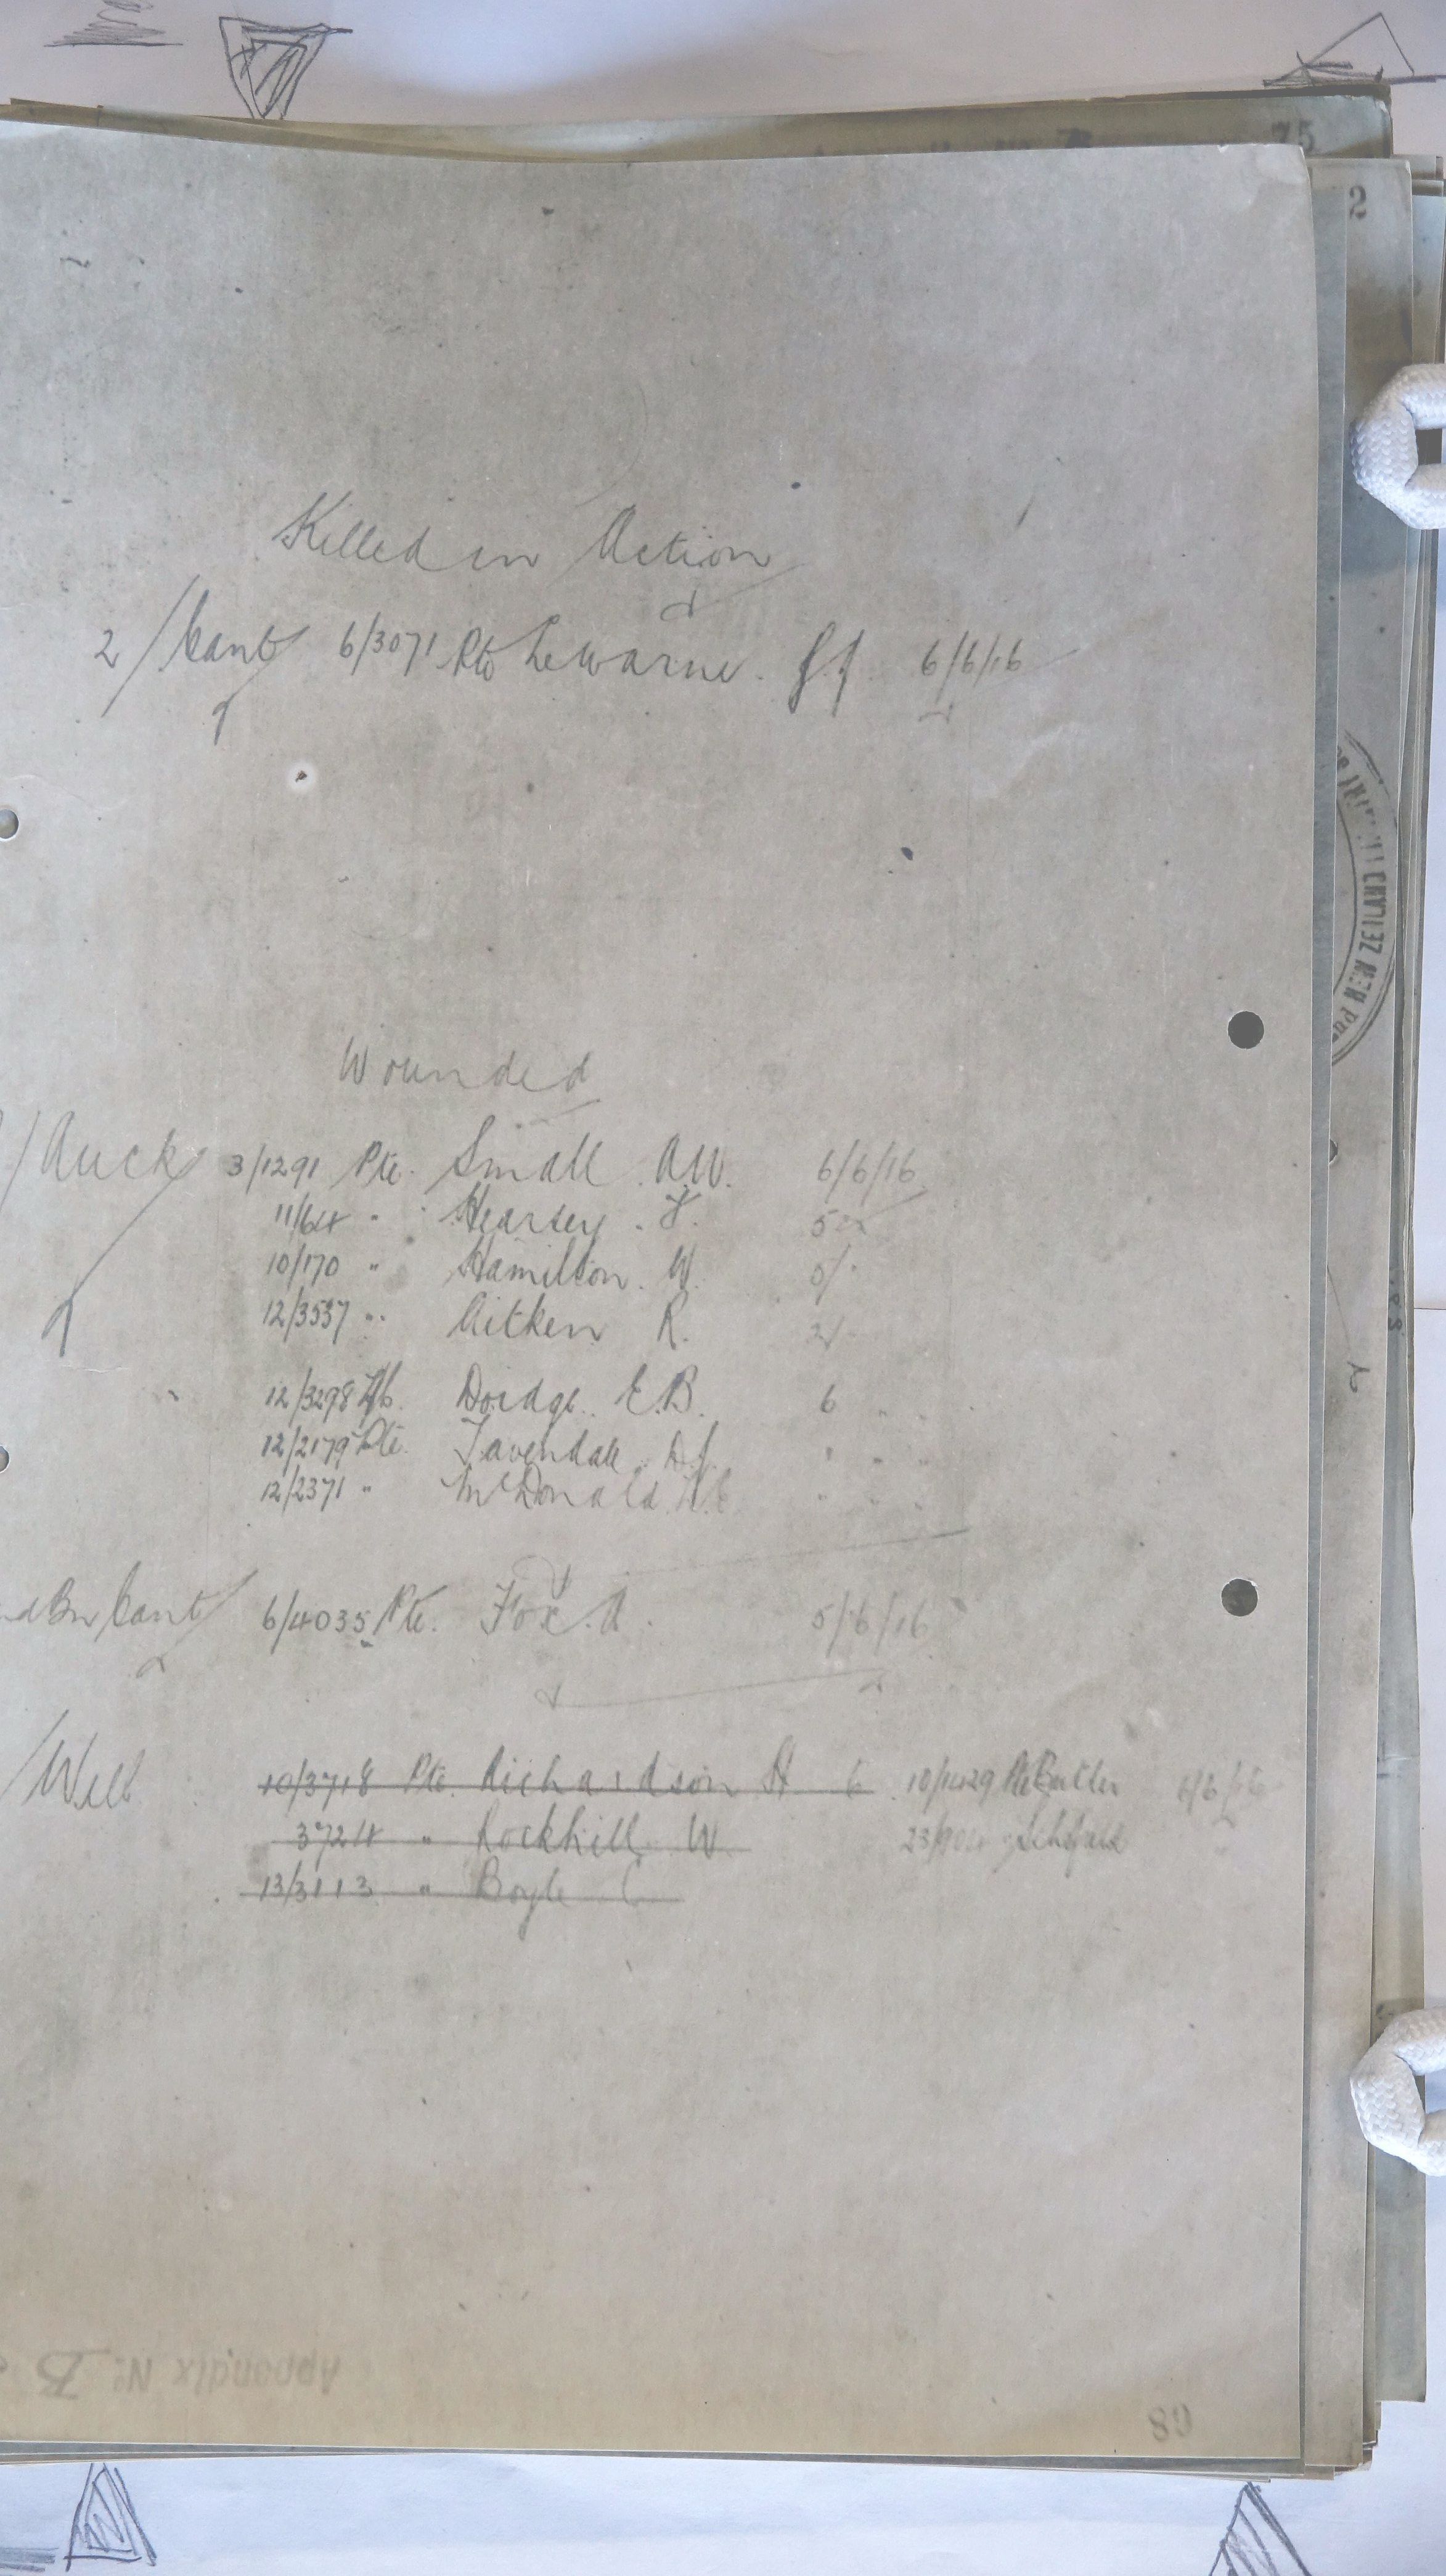 75
2
Killed in Action
2/Cant 6/3071 Pte Lewarne. J.J. 6/6/16
Wounded
/Auck 3/1291 Pte. Small A.W. 6/6/16
11/64 " Hearsey. F. 5
10/170 " Hamilton. W.
12/3537 " Aitken R. 2/
12/3298 Doidge. E.B. 6 " "
12/2179 Pte. Tavendale D.J. " " "
12/2371 " McDonald " " "
Bn Cant 6/4035 Pte. Fox. A. 5/6/16
/Well 10/3718 Pte. Richardson H 6 10/1429 Pte Butler 6/6/16
3724 " Rockhill W
13/3113 " Boyle C
Appendix No. B
68
NEW ZEALAND